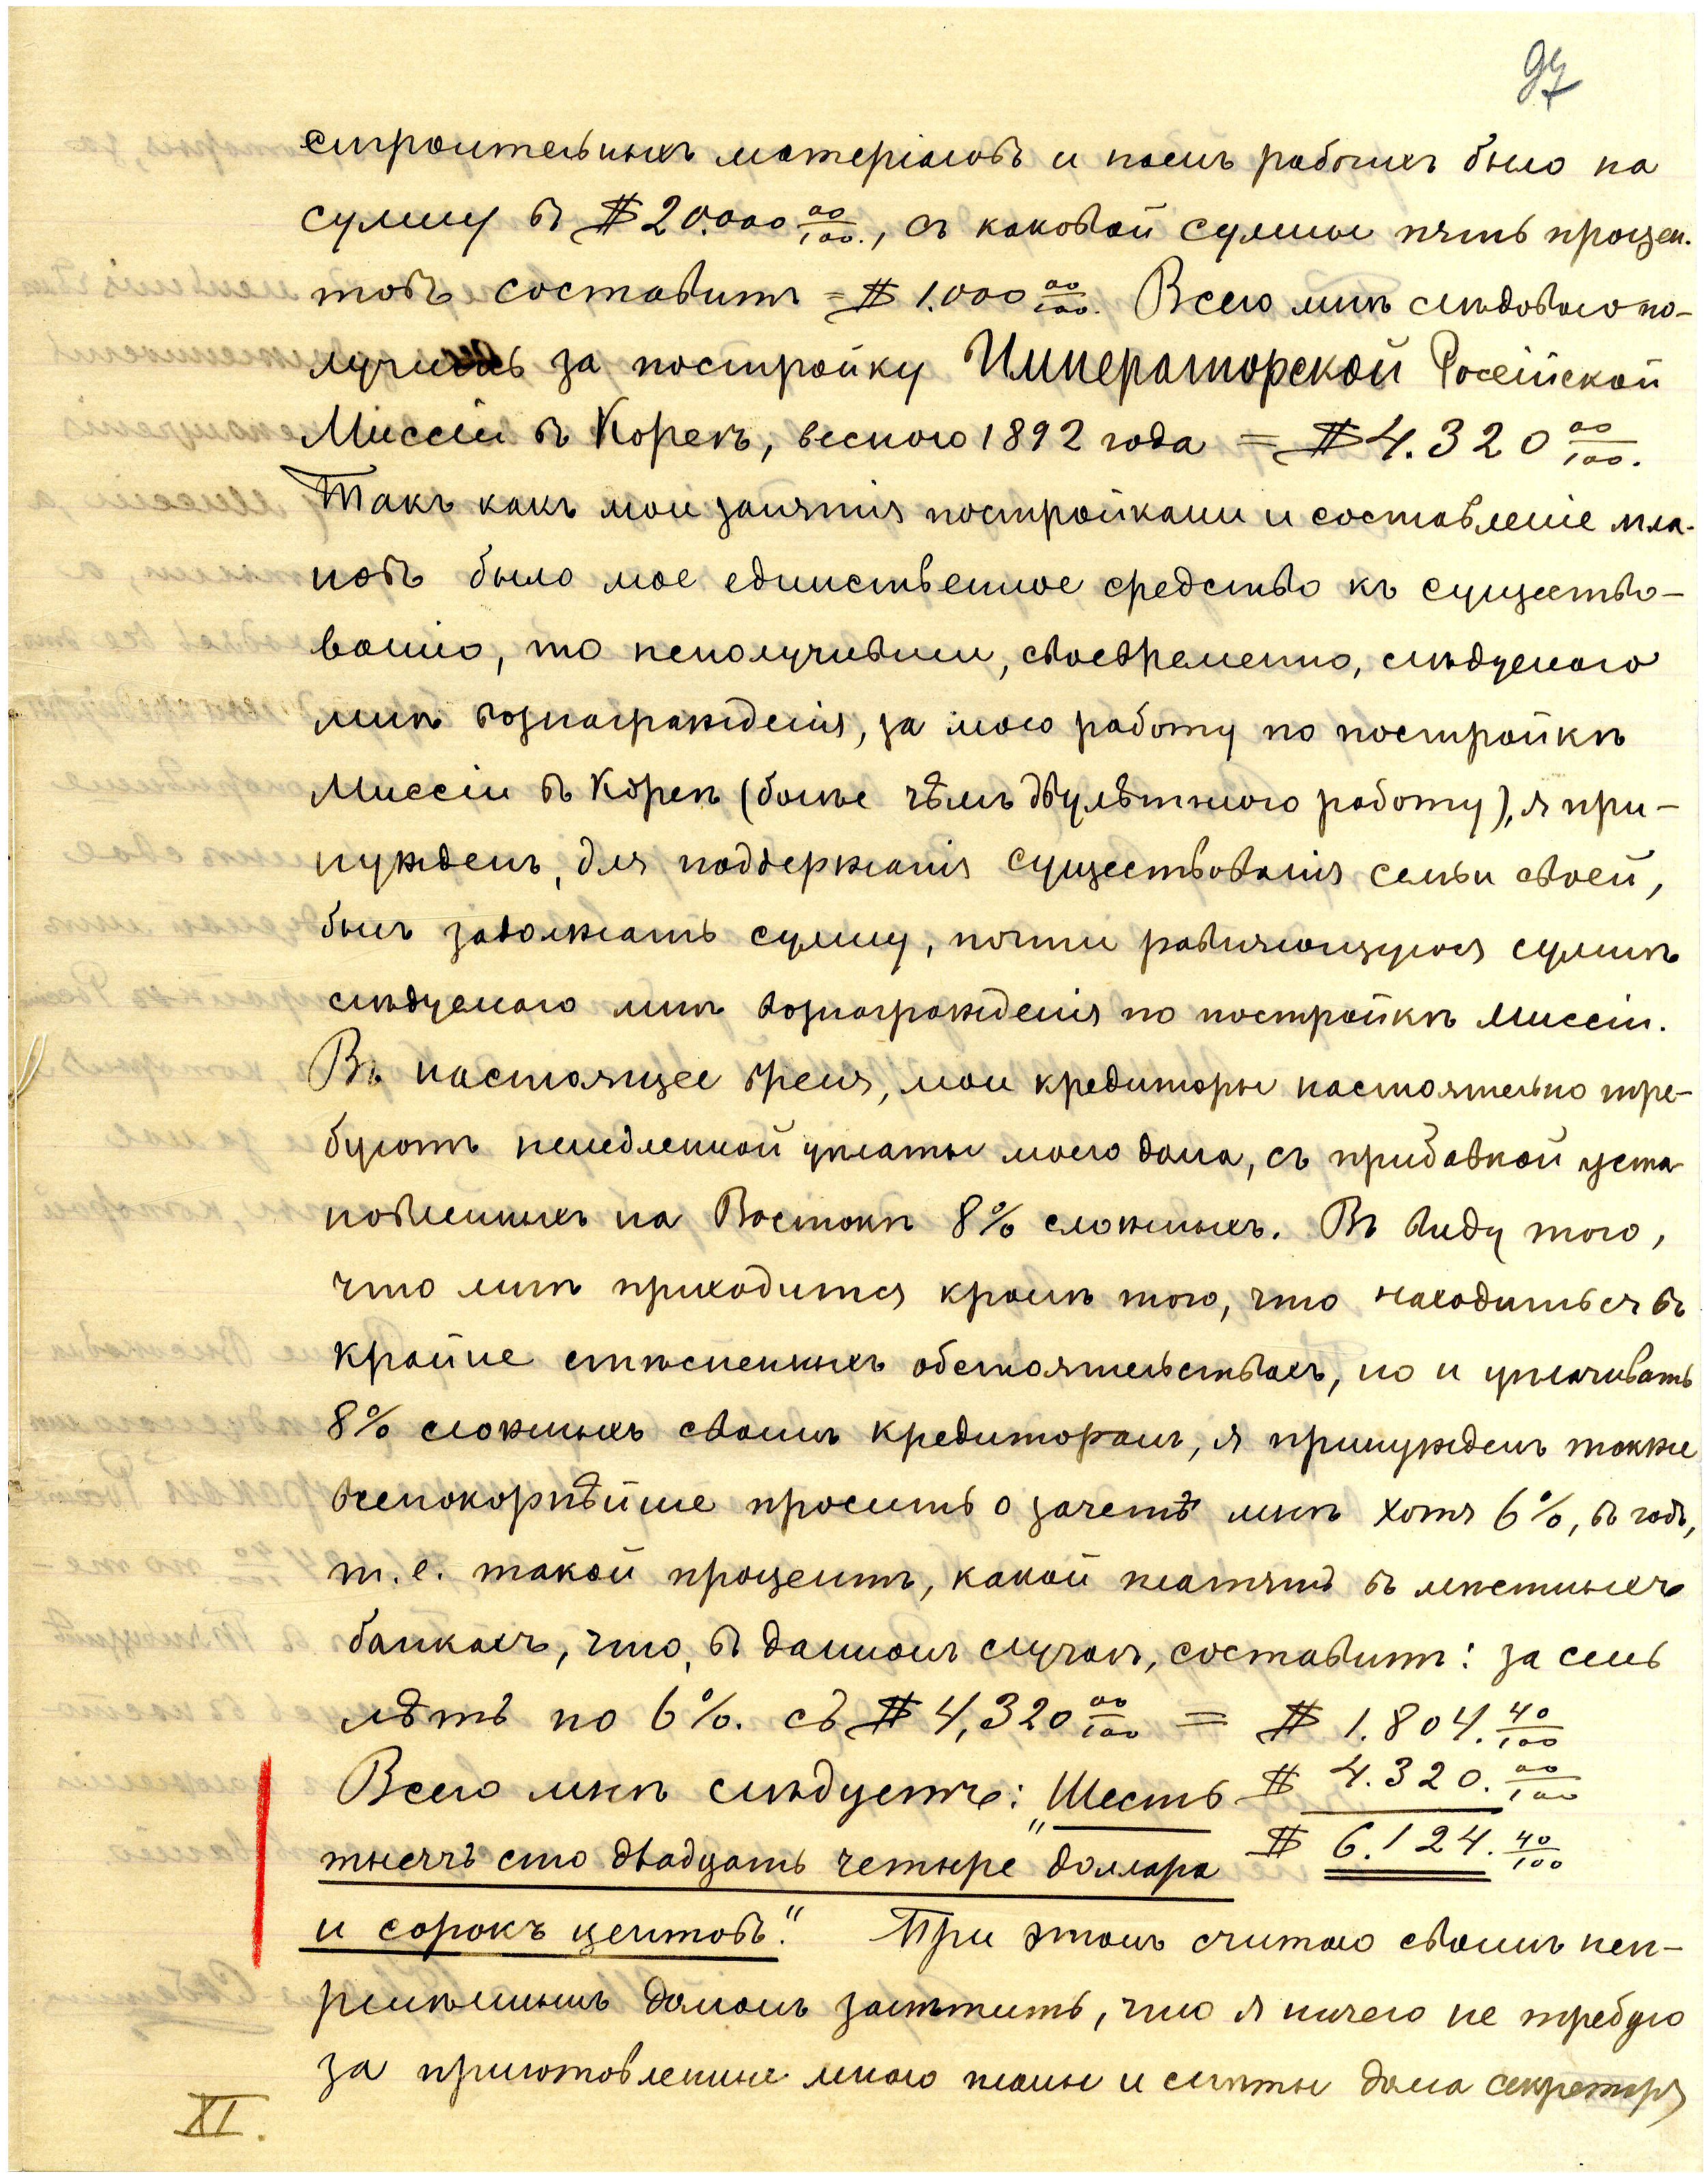 97
строительныхъ матеріаловъ и наемъ рабочихъ было на
сумму въ $ 20.000 00/100., съ каковой суммы пять процен-
товъ составитъ = $ 1.000 00/100. Всего мнѣ слѣдовало по-
лучить за постройку Императорской Россійской
Миссіи въ Кореѣ, весною 1892 года = $ 4.320 00/100.
Такъ какъ мои занятія постройками и составленіе пла-
новъ было мое единственное средство къ существо-
ванію, то неполучивши, своевременно, слѣдуемаго
мнѣ вознагражденія, за мою работу по постройкѣ
Миссіи въ Кореѣ (болѣе чѣмъ двулѣтнюю работу), я при-
нужденъ, для поддержанія существованія семьи своей,
былъ задолжать сумму, почти равняющуюся суммѣ
слѣдуемаго мнѣ вознагражденія по постройкѣ Миссіи.
Въ настоящее время, мои кредиторы настоятельно тре-
буютъ немедленной уплаты моего долга, съ придавкой уста-
новленныхъ на Востокѣ 8% сложныхъ. Въ виду того,
что мнѣ приходится кромѣ того, что находиться въ
крайне стѣсненныхъ обстоятельствахъ, но и уплачивать
8% сложныхъ своимъ кредиторамъ, я принужденъ также
всепокорнѣйше просить о зачетѣ мнѣ хотя 6%, въ годъ,
т.е. такой процентъ, какой платятъ въ мѣстныхъ
банкахъ, что, въ данномъ случаѣ, составитъ: за семь
лѣтъ по 6%. съ $ 4,320 00/100 = $ 1.804. 40/100
Всего мнѣ слѣдуетъ: „Шесть $ 4.320. 00/100
тысячъ сто двадцать четыре доллара $ 6.124. 40/100
и сорокъ центовъ“. При этомъ считаю своимъ неп-
ремѣннымъ долгомъ замѣтить, что я ничего не требую
за приготовленные мною планы и смѣты дома секретаря
XI.